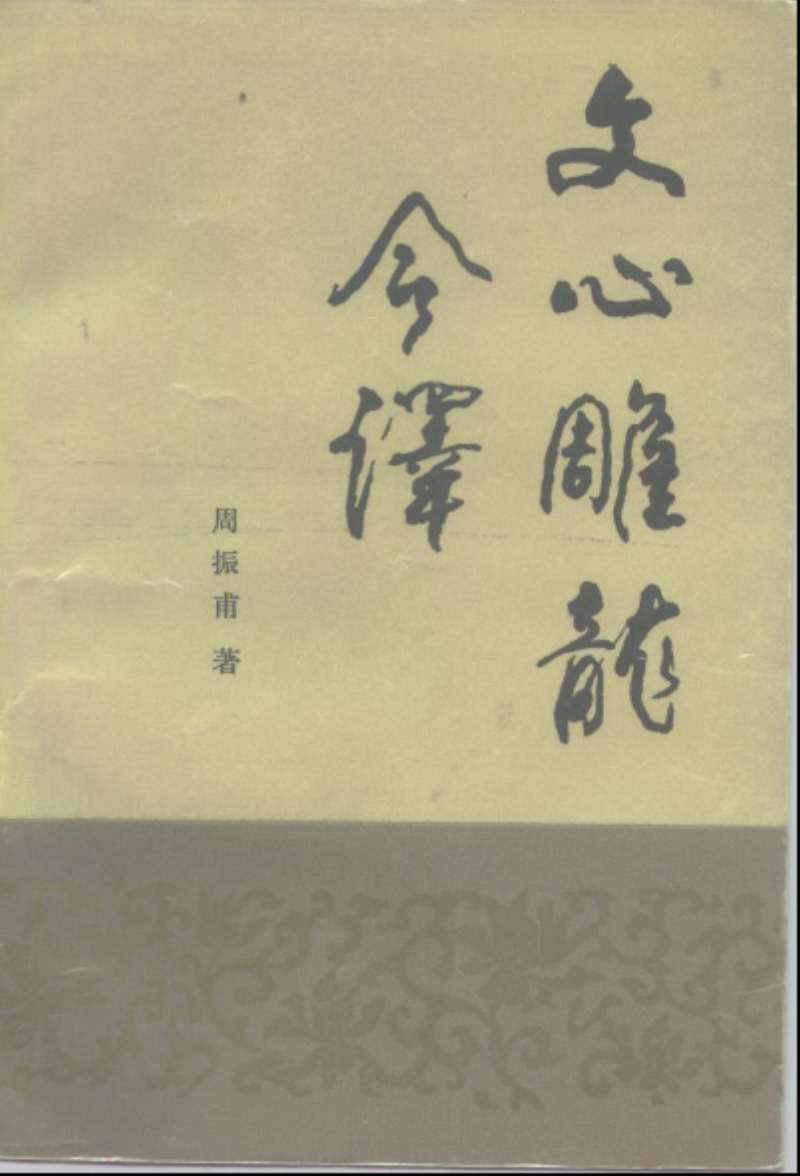 文心雕龍
今譯
周振甫 著